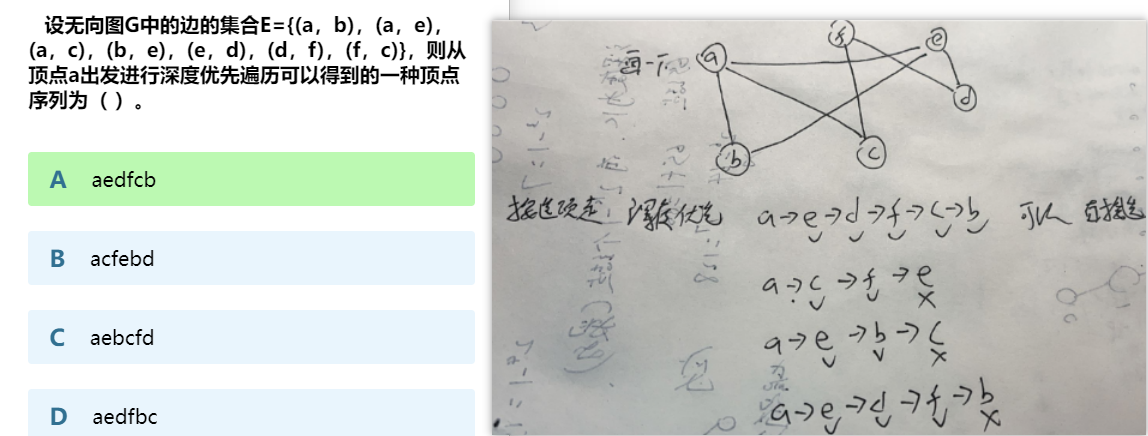 设无向图G中的边的集合E={(a，b)，(a，e)，
(a，c)，(b，e)，(e，d)，(d，f)，(f，c)}，则从
顶点a出发进行深度优先遍历可以得到的一种顶点
序列为（ ）。
A aedfcb
B acfebd
C aebcfd
D aedfbc
画一下
a
f
e
d
b
c
按选项走 深度优先 a→e→d→f→c→b 可以 直接选
a→c→f→e
×
a→e→b→c
×
a→e→d→f→b
×